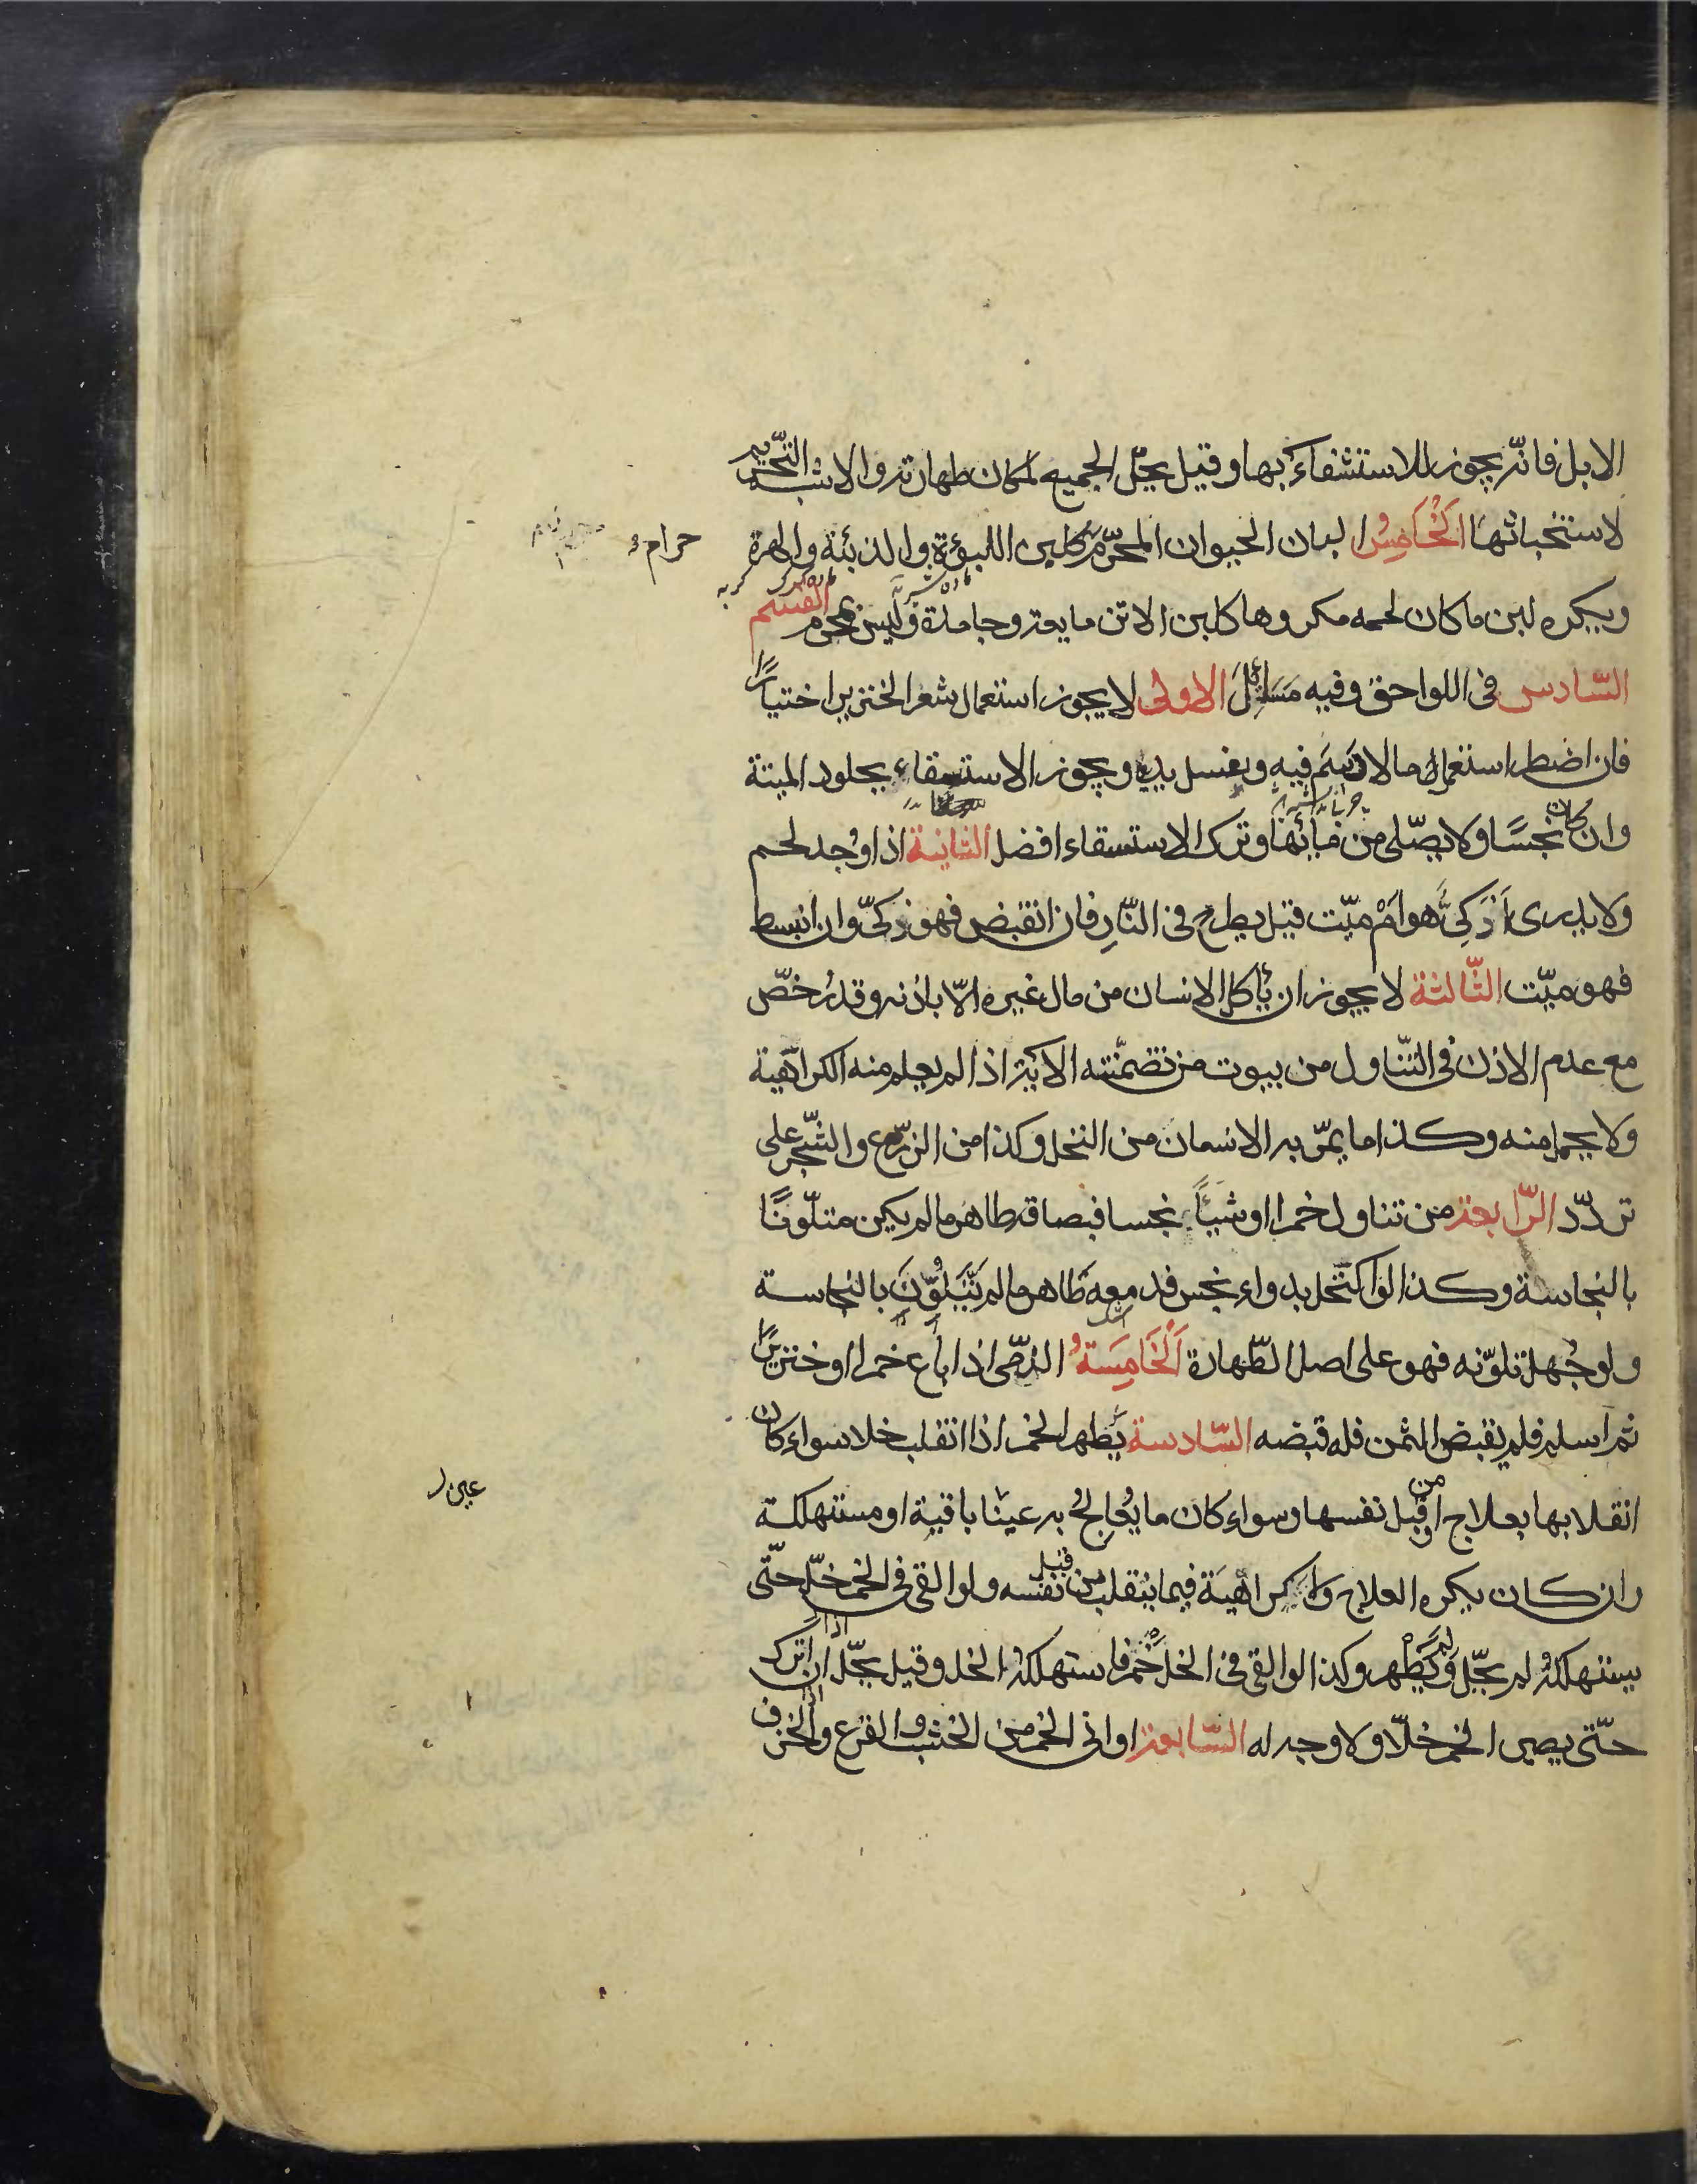 الابل فانّه يجوز للاستشفاء بها وقيل يحلّ الجميع لمكان طهارته والاشبه التّحريم
لاستخباثها الخَامِسُ البان الحيوان المحرّمة كلبن اللبؤة والذئبة والهرة
حرام
ويكره لبن ما كان لحمه مكروها كلبن الاتن مايعه وجامدة وليس بمحرم القسم
السّادس فى اللواحق وفيه مَسَائِلَ الاولى لا يجوز استعمال شعر الخنزير اختيارًا
فان اضطر استعمل ما لا دَسَمَ فيه وغسل يديه ويجوز الاستسقاء بجلود الميتة
وان كان نجسًا ولا يصّلى من مائها وترك الاستسقاء افضل الثانية اذا وُجد لحم
ولا يدرى اَذَكِىٌّ هو امْ ميّت قيل يطرح فى النّارِ فان انقبض فهو ذكىّ وان انبسط
فهو ميّت الثّالثة لا يجوز ان يأكل الانسان من مال غيره الّا باذنه وقد رُخصّ
مع عدم الاذن فى التّناول من بيوت من تضمّنته الآية اذا لم يعلم منه الكراهية
ولا يحمل منه وكذا ما يمرّ به الانسان من النخل وكذا من الزرع والشّجر على
تردّد الرّابعة من تناول خمرا او شيئًا نجسا فبصاقه طاهر ما لم يكن متلّونًا
بالنجاسة وكذا لو اكتحل بدواء نجس فدمعه طَاهر ما لم يَتَلَوَّن بالنجاسة
ولو جُهل تلوّنه فهو على اصل الطّهارة اَلخَامِسَةُ الذمّى اذا باع خمرا او خنزيرًا
ثم اسلم فلم يقبض الثمن فله قبضه السّادسة يَطهر الخمر اذا انقلب خلا سواء كان
انقلابها بعلاج او من قبل نفسها وسواء كان ما يُعالجُ به عينا باقية او مستهلكة
عين
وان كان يكره العلاج ولا كراهيَة فيما ينقلب من قبل نفسه ولو القى فى الخمر خلّ حتّى
يستهلكه لم يحّل ولم يَطْهر وكذا لو القى فى الخل خَمر فاستهلكه الخل وقيل يحّل اذا ترك
حتّى يصير الخمر خلّا ولا وجه له السّابعة اوانى الخمر من الخشب والقرع والخزف